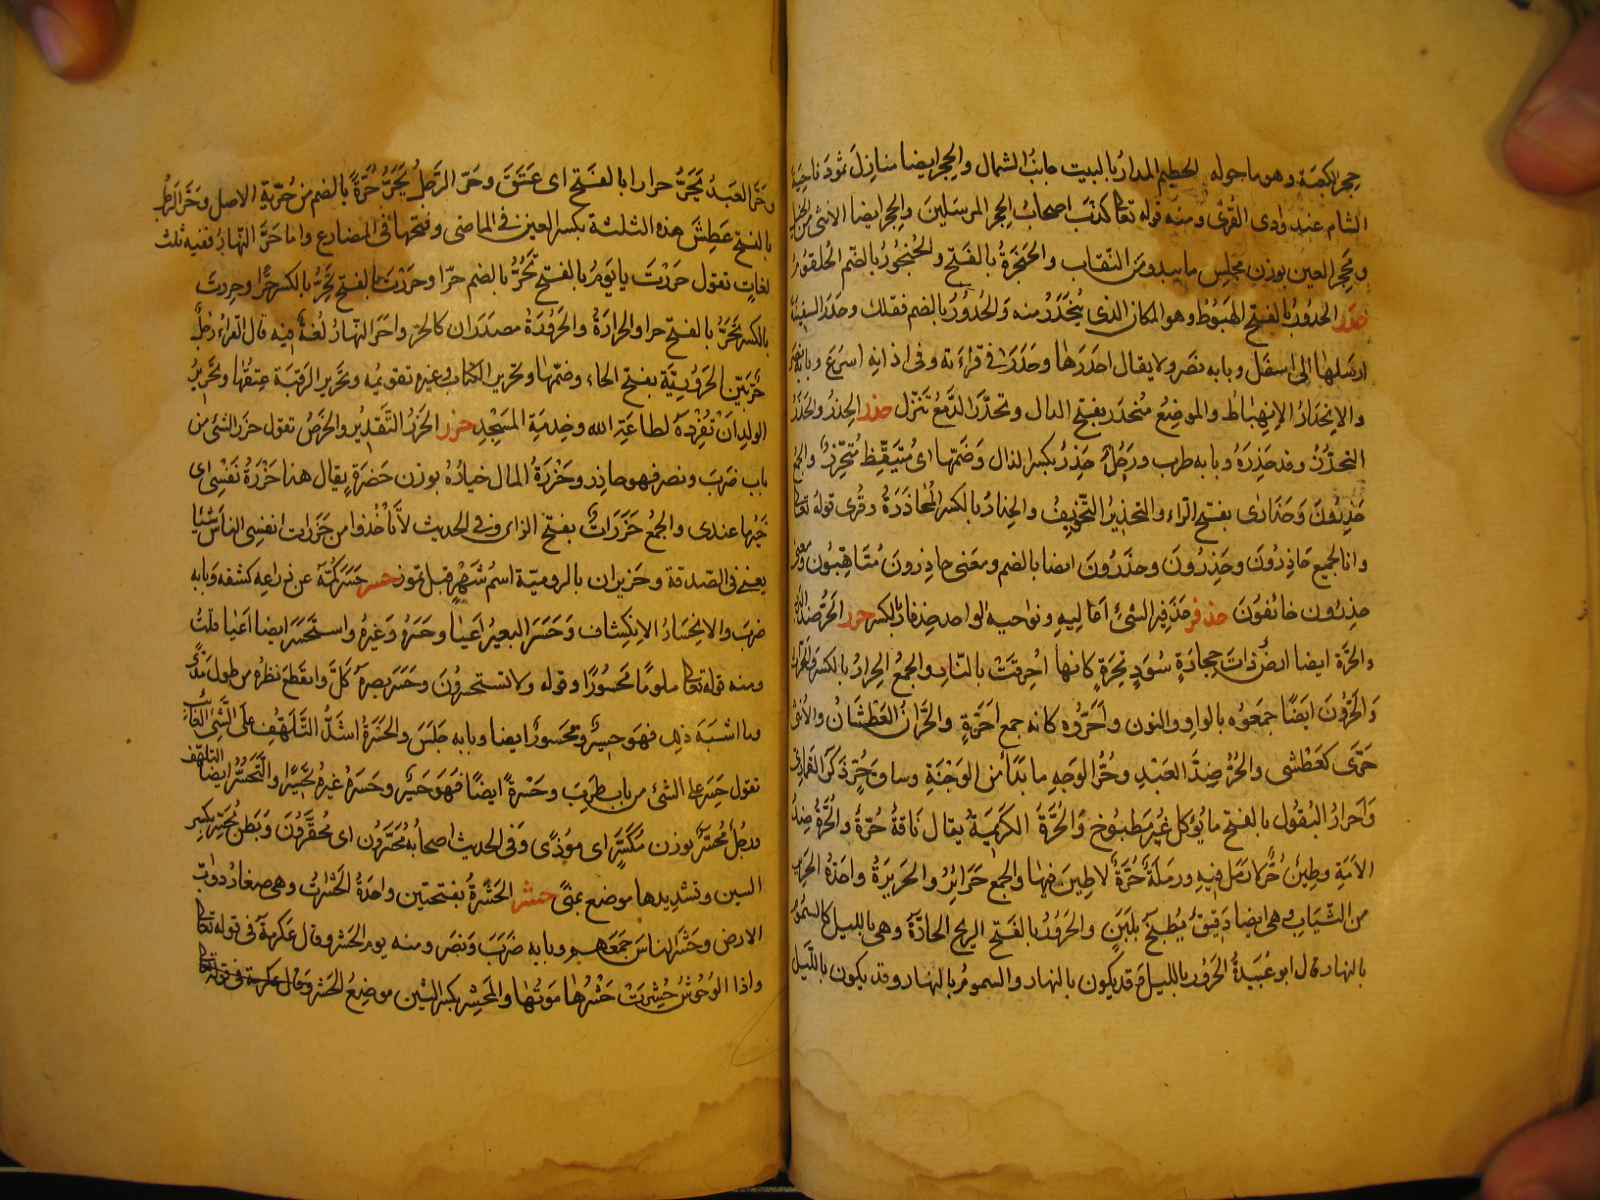 حجر الكعبة وهو ما حوله الحطيم المدار بالبيت جانب الشمال والحجر ايضا منازل ثمود ناحية
الشام عند وادى القرى ومنه قوله تعالى كذب اصحاب الحجر المرسلين والحجر ايضا الانثى من الخيل
ومحجر العين بوزن مجلس ما يبدو من النقاب والحنجرة بالفتح والحنجور بالضم الحلقوم
حدر الحدور بالفتح الهبوط وهو المكان الذى ينحدر منه والحدور بالضم فعلك وحدر السفينة
ارسلها الى اسفل وبابه نصر ولا يقال احدرها وحدر فى قراءته وفى اذانه اسرع وبابه نصر
والانحدار الانهباط والموضع منحدر بفتح الدال وتحدر الدمع تنزل حذر الحذر والحذر
التحرز وقد حذره وبابه طرب ورجل حذر بكسر الذال وضمها اى متيقظ متحرز والجمع
حذرون وحذارى بفتح الراء والتحذير التخويف والحذار بالكسر المحاذرة وقرئ قوله تعالى
وانا لجميع حاذرون وحذرون وحذرون ايضا بالضم ومعنى حاذرون متاهبون ومعنى
حذرون خائفون حذفر حذافير الشئ اعاليه ونواحيه الواحد حذفار بالكسر حرر الحر ضد البرد
والحرة ايضا ارض ذات حجارة سود نخرة كانها احرقت بالنار والجمع الحرار بالكسر والحرات
والحرون ايضا جمعوه بالواو والنون واحرون كانه جمع احرة والحران العطشان والانثى
حرى كعطشى والحر ضد العبد وحر الوجه ما بدا من الوجنة وساق حر ذكر القمارى
واحرار البقول بالفتح ما يؤكل غير مطبوخ والحرة الكريمة يقال ناقة حرة والحرة ضد
الامة وطين حر لا رمل فيه ورملة حرة لا طين فيها والجمع حرائر والحريرة واحدة الحرير
من الثياب وهى ايضا دقيق يطبخ بلبن والحرور بالفتح الريح الحارة وهى بالليل كالسموم
بالنهار قال ابو عبيدة الحرور بالليل وقد يكون بالنهار والسموم بالنهار وقد يكون بالليل
وحر العبد يحر حرارا بالفتح اى عتق وحر الرجل يحر حرة بالضم من حرية الاصل وحر الرجل
بالفتح عطش هذه الثلثة بكسر العين فى الماضى وفتحها فى المضارع واما حر النهار ففيه ثلث
لغات تقول حررت يا يوم بالفتح تحر بالضم حرا وحررت بالفتح تحر بالكسر حرا وحررت
بالكسر تحر بالفتح حرا والحرارة والحرورة مصدران كالحر واحر النهار لغة فيه قال الفراء رجل
حر بين الحرورية بفتح الحاء وضمها وتحرير الكتاب وغيره تقويمه وتحرير الرقبة عتقها وتحرير
الولد ان تفرده لطاعة الله وخدمة المسجد حزر الحزر التقدير والخرص تقول حزر الشئ من
باب ضرب ونصر فهو حازر وحزرة المال خياره بوزن حضرة يقال هذا حزرة نفسى اى
خيرها عندى والجمع حزرات بفتح الزاى وفى الحديث لا تاخذوا من حزرات انفس الناس شيئا
يعنى فى الصدقة وحزيران بالرومية اسم شهر قبل تموز حسر حسر كمه عن ذراعه كشفه وبابه
ضرب والانحسار الانكشاف وحسر البعير اعيا وحسره غيره واستحسر ايضا اعيا قلت
ومنه قوله تعالى ملوما محسورا وقوله ولا يستحسرون وحسر بصره كل وانقطع نظره من طول مدى
وما اشبه ذلك فهو حسير ومحسور ايضا وبابه جلس والحسرة اشد التلهف على الشئ الفائت
تقول حسر على الشئ من باب طرب وحسرة ايضا فهو حسير وحسره غيره تحسيرا والتحسر ايضا التلهف
ورجل محسر بوزن مكسر اى موذى وفى الحديث اصحابه محسرون اى محقرون وبطن محسر بكسر
السين وتشديدها موضع بمنى حشر الحشرة بفتحتين واحدة الحشرات وهى صغار دواب
الارض وحشر الناس جمعهم وبابه ضرب ونصر ومنه يوم الحشر وقال عكرمة فى قوله تعالى
واذا الوحوش حشرت حشرها موتها والمحشر بكسر الشين موضع الحشر وقال عكرمة فى قوله تعالى